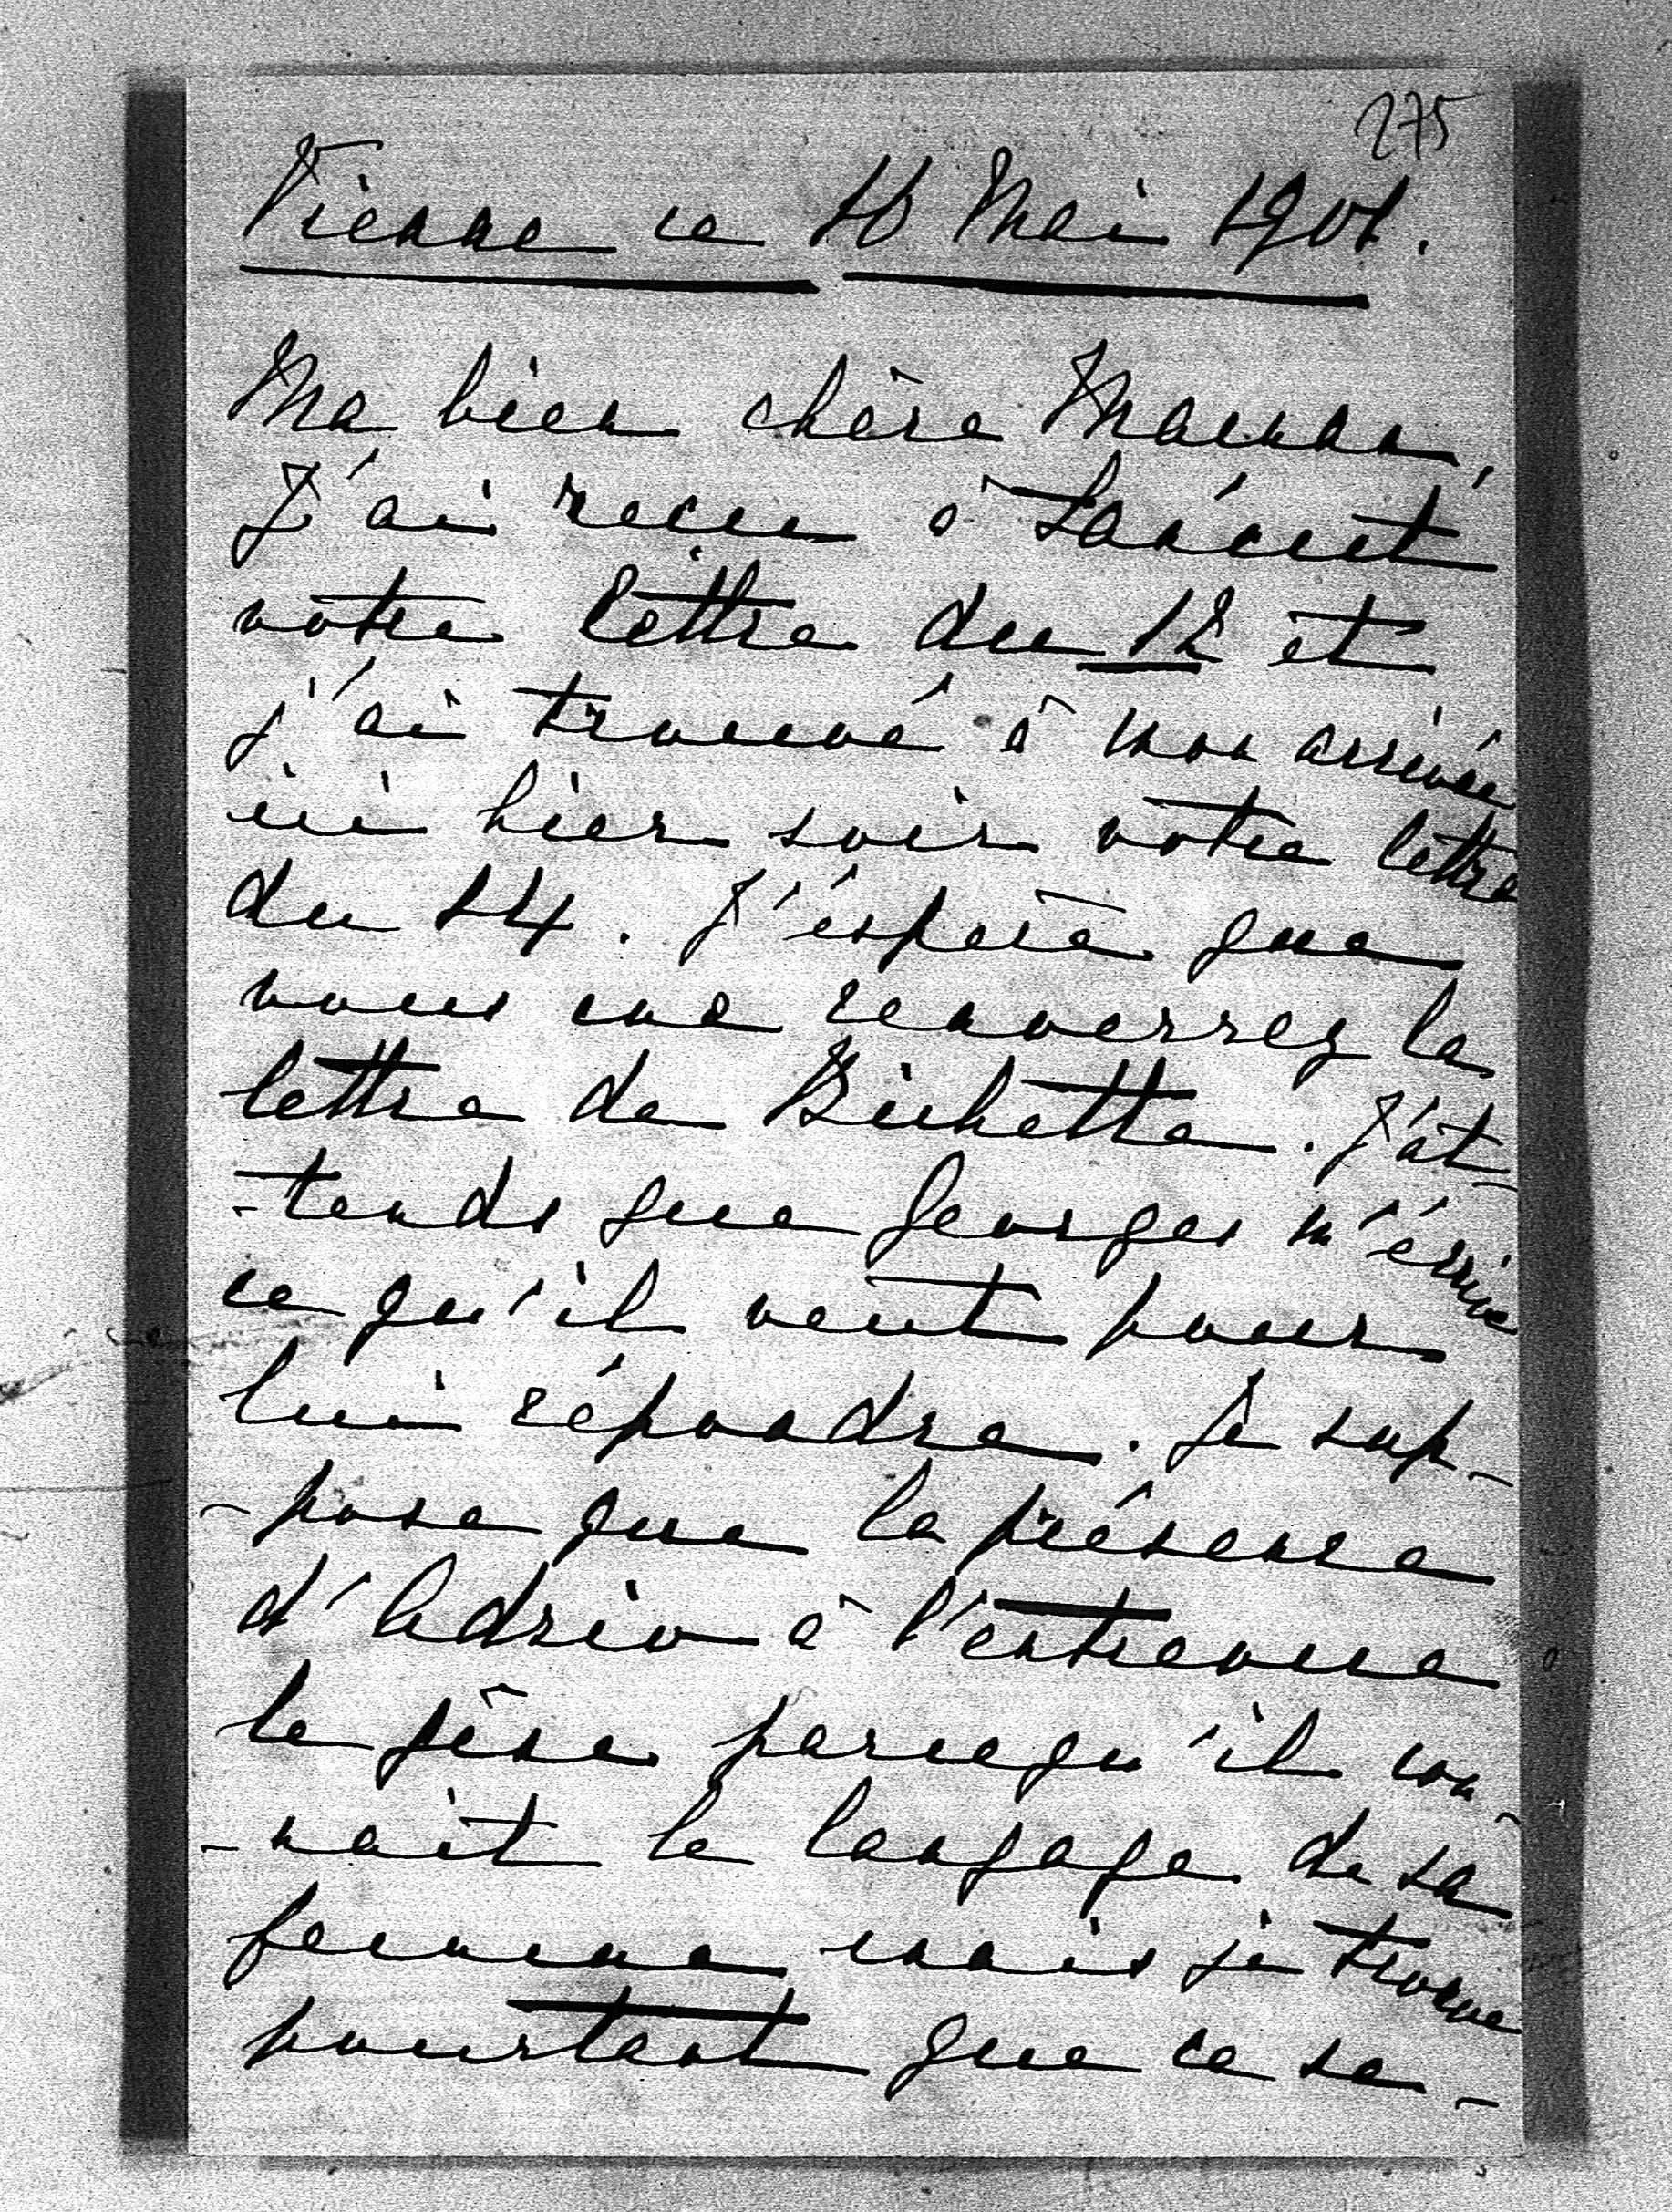 275
Vienne ce 16 Mai 1901.
Ma bien chère Maman,
J'ai reçu à Łańcut
votre lettre du 12 et
j'ai trouvé à mon arrivée
ici hier soir votre lettre
du 14. J'espère que
vous me renverrez la
lettre de Bichette. J'at-
-tends que Georges m'écrive
ce qu'il veut pour
lui répondre. Je sup-
-pose que la présence
d'Adzio à l'entrevue
le gêne parcequ'il con-
-nait le langage de sa
femme mais je trouve
pourtant que ce se-